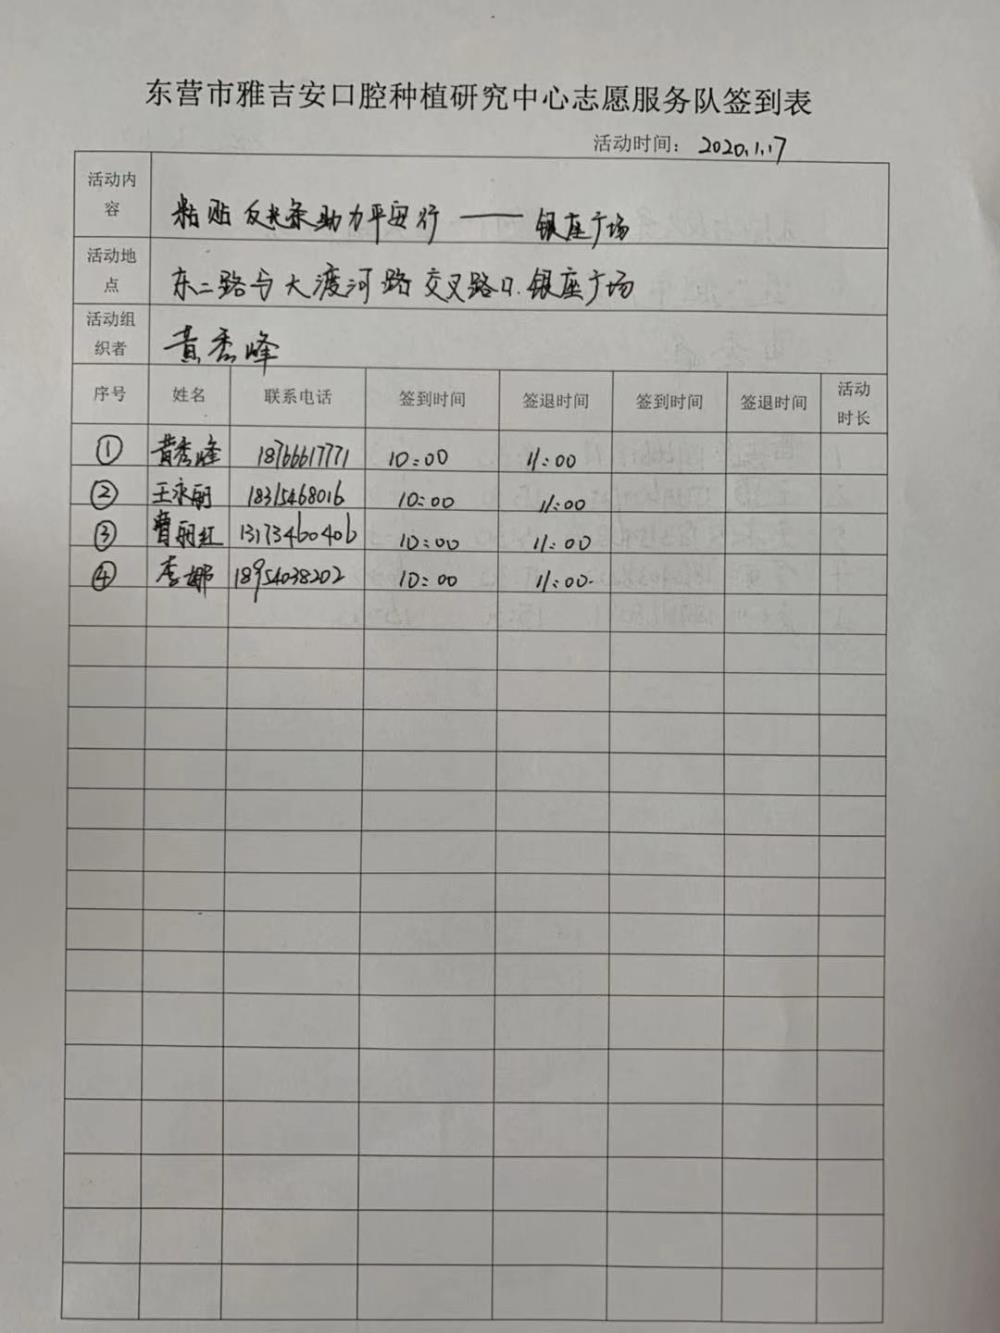 东营市雅吉安口腔种植研究中心志愿服务队签到表
活动时间： 2020.1.17
活动内容 粘贴反光条助力平安行 —— 银座广场
活动地点 东二路与大渡河路交叉路口.银座广场
活动组织者 黄秀峰
序号 姓名 联系电话 签到时间 签退时间 签到时间 签退时间 活动时长
① 黄秀峰 18766617771 10:00 11:00
② 王永丽 18315468016 10:00 11:00
③ 曹丽红 13173460406 10:00 11:00
④ 李娜 18954038202 10:00 11:00.